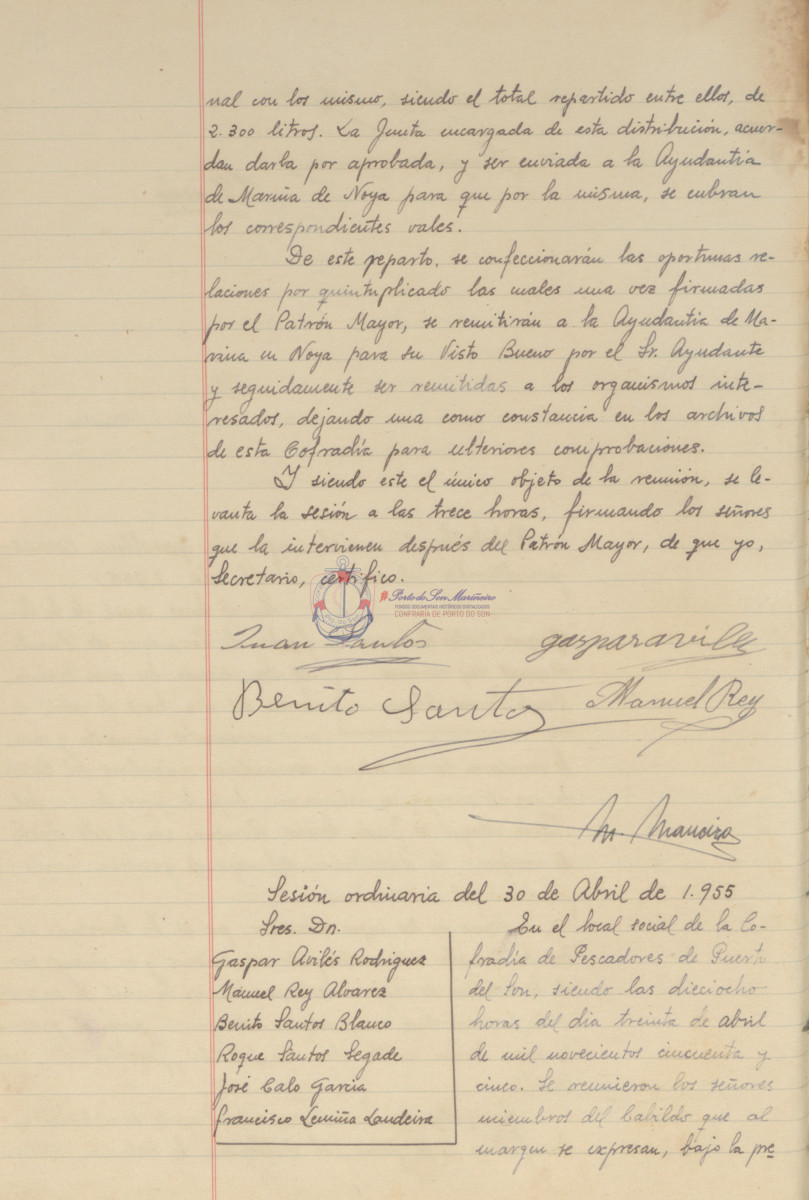 nal con los mismo, siendo el total repartido entre ellos, de
2.300 litros. La Junta encargada de esta distribución, acuer-
dan darla por aprobada, y ser enviada a la Ayudantia
de Marina de Noya para que por la misma, se cubran
los correspondientes vales.
De este reparto, se confeccionarán las oportunas re-
laciones por quintuplicado las cuales una vez firmadas
por el Patrón Mayor, se remitirán a la Ayudantia de Ma-
rina en Noya para su Visto Bueno por el Sr. Ayudante
y seguidamente ser remitidas a los organismos inte-
resados, dejando una como constancia en los archivos
de esta Cofradía para ulteriores comprobaciones.
Y siendo este el único objeto de la reunión, se le-
vanta la sesión a las trece horas, firmando los señores
que la intervienen después del Patrón Mayor, de que yo,
Secretario, certifico.
#Porto do Son Mariñeiro
FONDOS DOCUMENTAIS HISTÓRICOS DIGITALIZADOS
CONFRARÍA DE PORTO DO SON
Juan Santos
gasparaviles
Benito Santos
Manuel Rey
M. Maneiro
Sesión ordinaria del 30 de Abril de 1.955
Sres. Dn.
Gaspar Avilés Rodriguez
Manuel Rey Alvarez
Benito Santos Blanco
Roque Santos Segade
José Calo Garcia
Francisco Lemiña Landeira
En el local social de la Co-
fradia de Pescadores de Puerto
del Son, siendo las dieciocho
horas del dia treinta de abril
de mil novecientos cincuenta y
cinco. Se reunieron los señores
miembros del Cabildo que al
margen se expresan, bajo la pre